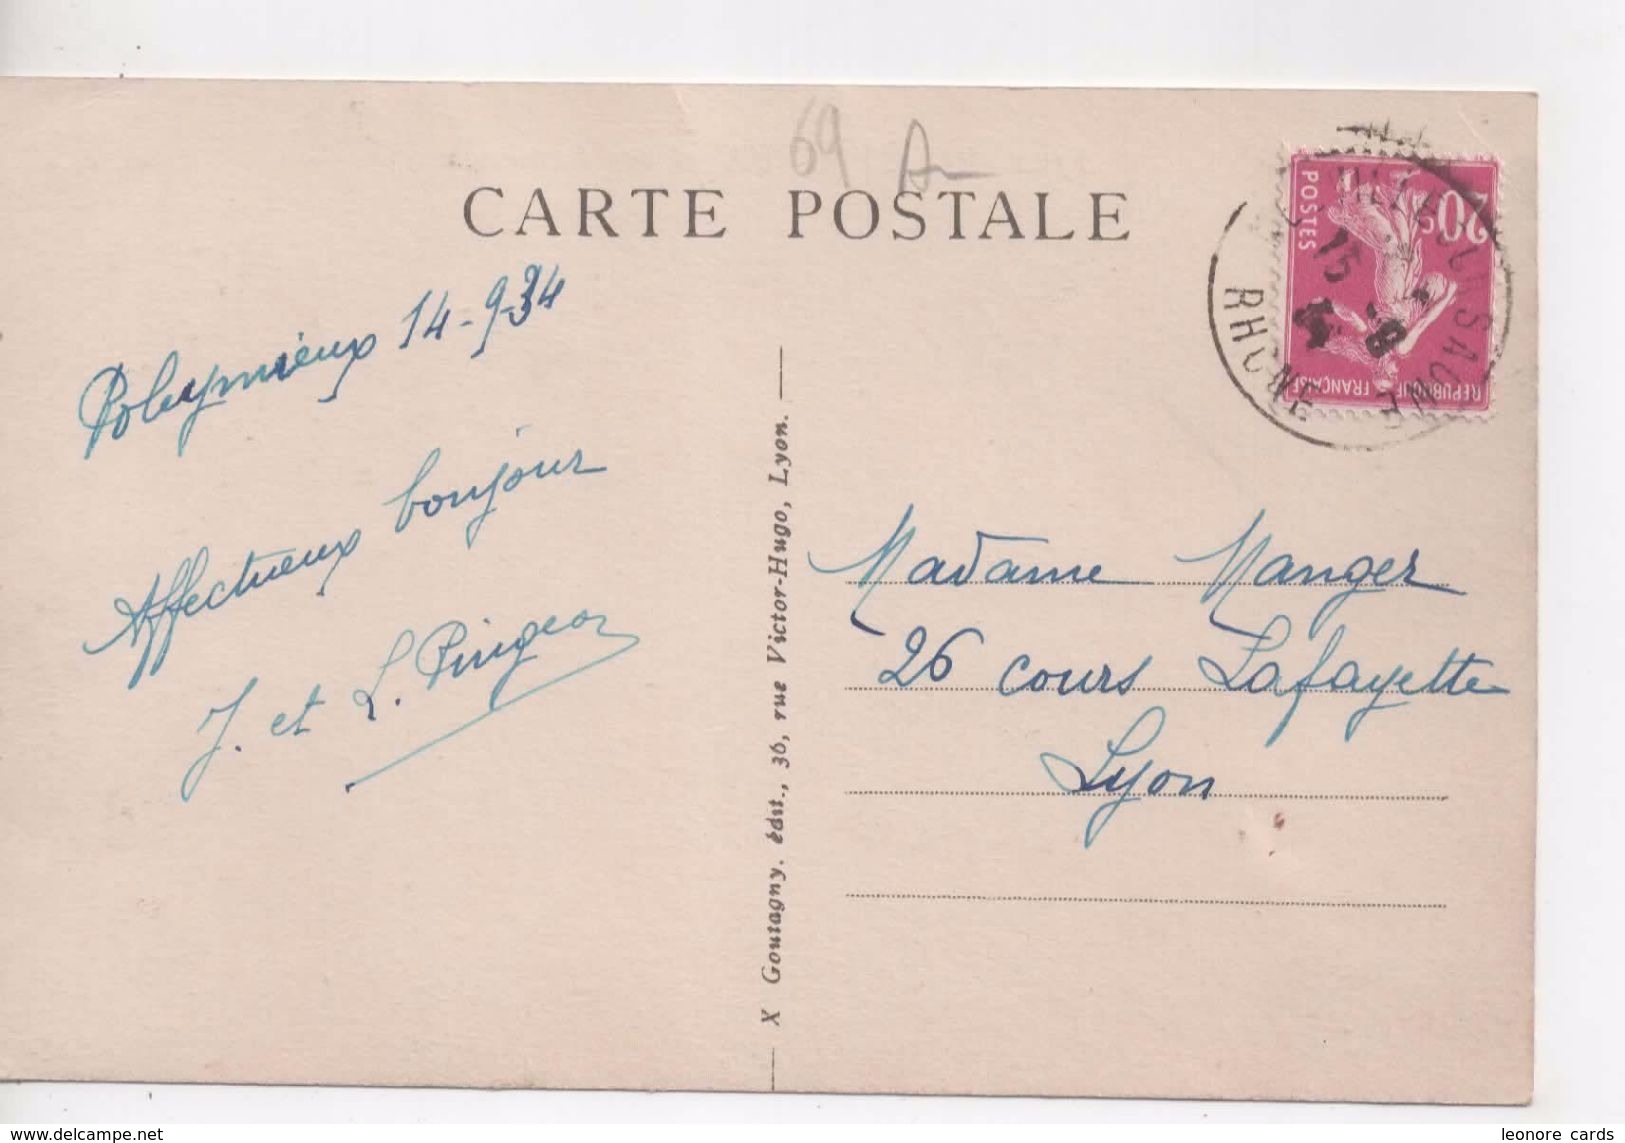 69 A
CARTE POSTALE
Poleymieux 14-9-34
Affectueux bonjour
J. et L. Pingeon
X Goutagny. édit., 36, rue Victor-Hugo, Lyon.
20c
POSTES
REPUBLIQUE FRANÇAISE
RHONE
15
Madame Manger
26 cours Lafayette
Lyon
www.delcampe.net
leonore cards